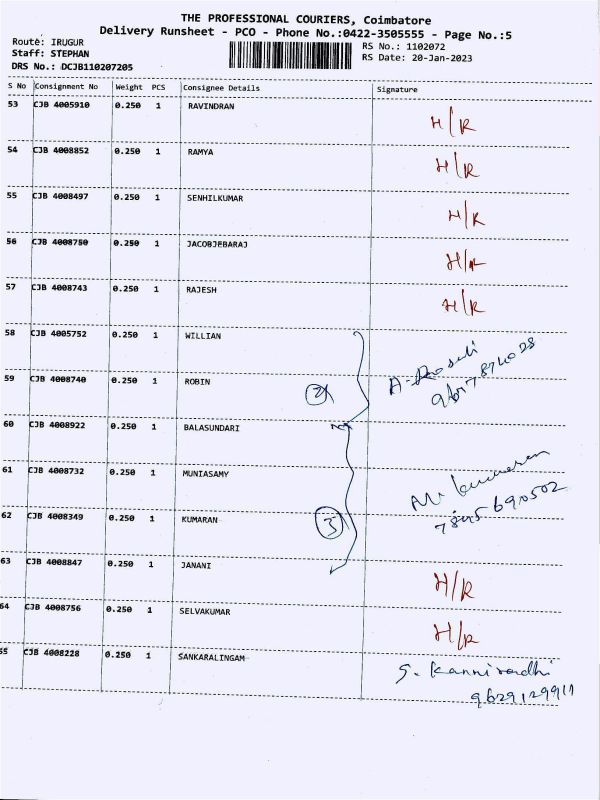 THE PROFESSIONAL COURIERS, Coimbatore
Delivery Runsheet - PCO - Phone No.:0422-3505555 - Page No.:5
Route: IRUGUR
Staff: STEPHAN
DRS No.: DCJB110207205
RS No.: 1102072
RS Date: 20-Jan-2023
S No Consignment No Weight PCS Consignee Details Signature
53 CJB 4005910 0.250 1 RAVINDRAN H/R
54 CJB 4008852 0.250 1 RAMYA H/R
55 CJB 4008497 0.250 1 SENHILKUMAR H/R
56 CJB 4008750 0.250 1 JACOBJEBARAJ H/R
57 CJB 4008743 0.250 1 RAJESH H/R
58 CJB 4005752 0.250 1 WILLIAN
59 CJB 4008740 0.250 1 ROBIN 2
60 CJB 4008922 0.250 1 BALASUNDARI
61 CJB 4008732 0.250 1 MUNIASAMY
62 CJB 4008349 0.250 1 KUMARAN 3
63 CJB 4008847 0.250 1 JANANI H/R
64 CJB 4008756 0.250 1 SELVAKUMAR H/R
65 CJB 4008228 0.250 1 SANKARALINGAM
9629129911